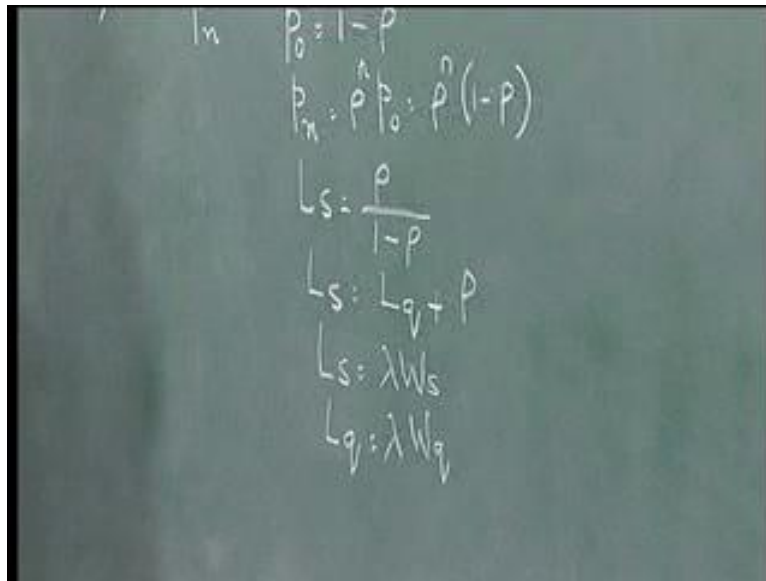 Pn P₀ = 1 - ρ
Pn = ρⁿ P₀ = ρⁿ (1-ρ)
Ls = ρ / (1-ρ)
Ls = Lq + ρ
Ls = λWs
Lq = λWq